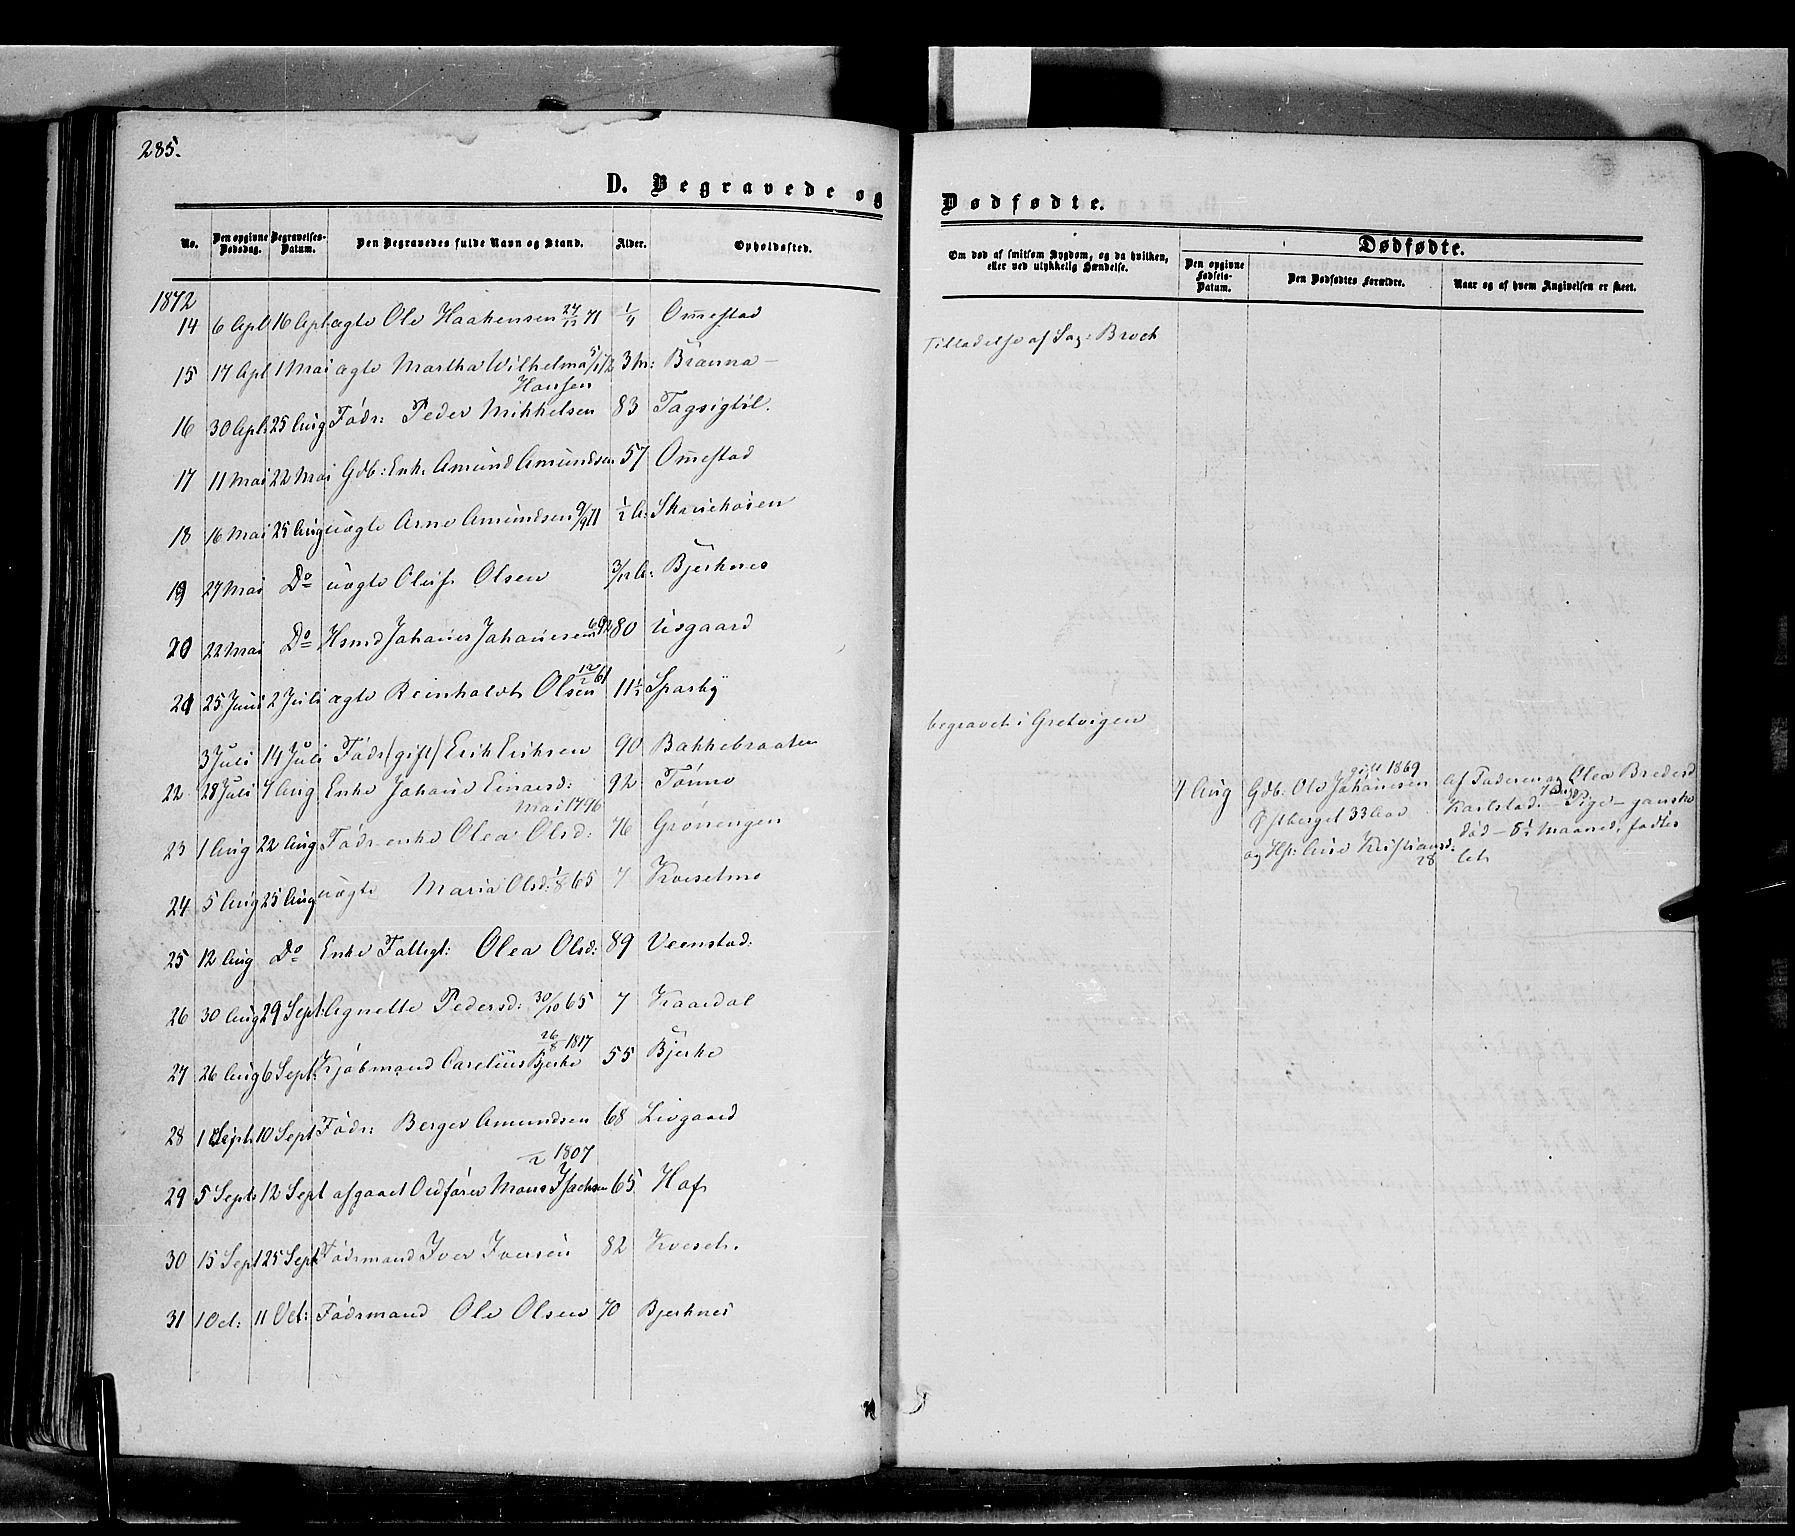 285.
D. Begravede og
No.
Den opgivne Dødsdag.
Begravelses-Datum.
Den Begravedes fulde Navn og Stand.
Alder.
Opholdssted.
1872
14 6 Apl 16 Apl ægte Ole Haakensen 27/12 71 1/4 Om̄estad
15 17 Apl 1 Mai ægte Martha Wilhelma 5/1 72 3 M: Brænna
Hansen
16 30 Apl 25 Aug Føds: Peder Mikkelsen 83 Tagsigtil.
17 11 Mai 22 Mai Gdb: Enk. Amund Amundsen 57 Om̄estad
18 16 Mai 25 Aug uægte Arne Amundsen 9/9 71 1/2 A:
19 27 Mai Do uægte Oluf Olsen 3/12 A: Bjerknes
20 22 Mai Do Hsmd Johanes Johanesen 80 Lisgaard
21 25 Juni 2 Juli ægte Reinholdt Olsen 12/2 61 11 1/2 Sparby
3 Juli 14 Juli Føds (gift) Erik Eriksen 90 Bakkebraaten
22 28 Juli 4 Aug Enke Johane Einarsd: 92 Tømte
Mai 1796
23 1 Aug 22 Aug Føds enke Olea Olsd: 76 Grønengen
24 5 Aug 25 Aug uægte Maria Olsd: 1/8 65 7 Kveselmo
25 12 Aug Do Enke Fattigl: Olea Olsd: 89 Veenstad:
26 30 Aug 29 Sept: Agnette Pedersd: 30/10 65 7 Kaardal
26/8 1817
27 26 Aug 6 Sept: Kjøbmand Carelius Bjerke 55 Bjerke
28 1 Sept. 10 Sept Føds: Berger Amundsen 68 Livgaard
1807
29 5 Sept: 12 Sept afgaaet Ordfører Mons Isachsen 65 Hof
30 15 Sept 25 Sept Fødsmand Iver Iversen 82 Kveset.
31 1 Oct: 11 Oct: Fødsmand Ole Olsen 70 Bjerknes
Dødfødte.
Om død af smitsom Sygdom, og da hvilken, eller ved ulykkelig Hændelse.
Dødfødte.
Den opgivne Fødsels-Datum.
Den Dødfødtes Forældre.
Naar og af hvem Angivelsen er skeet.
Tilladelse af Sag: Broch
begravet i Gretvigen
4 Aug
gift 1869
Gdb: Ole Johanesen
Østberget 33 Aar
og H: Anne Kristiansd:
28
af Faderen og Olea Bredersd
Karlstad. – Pige – ganske
død – 5 1/2 Maaned, fødte